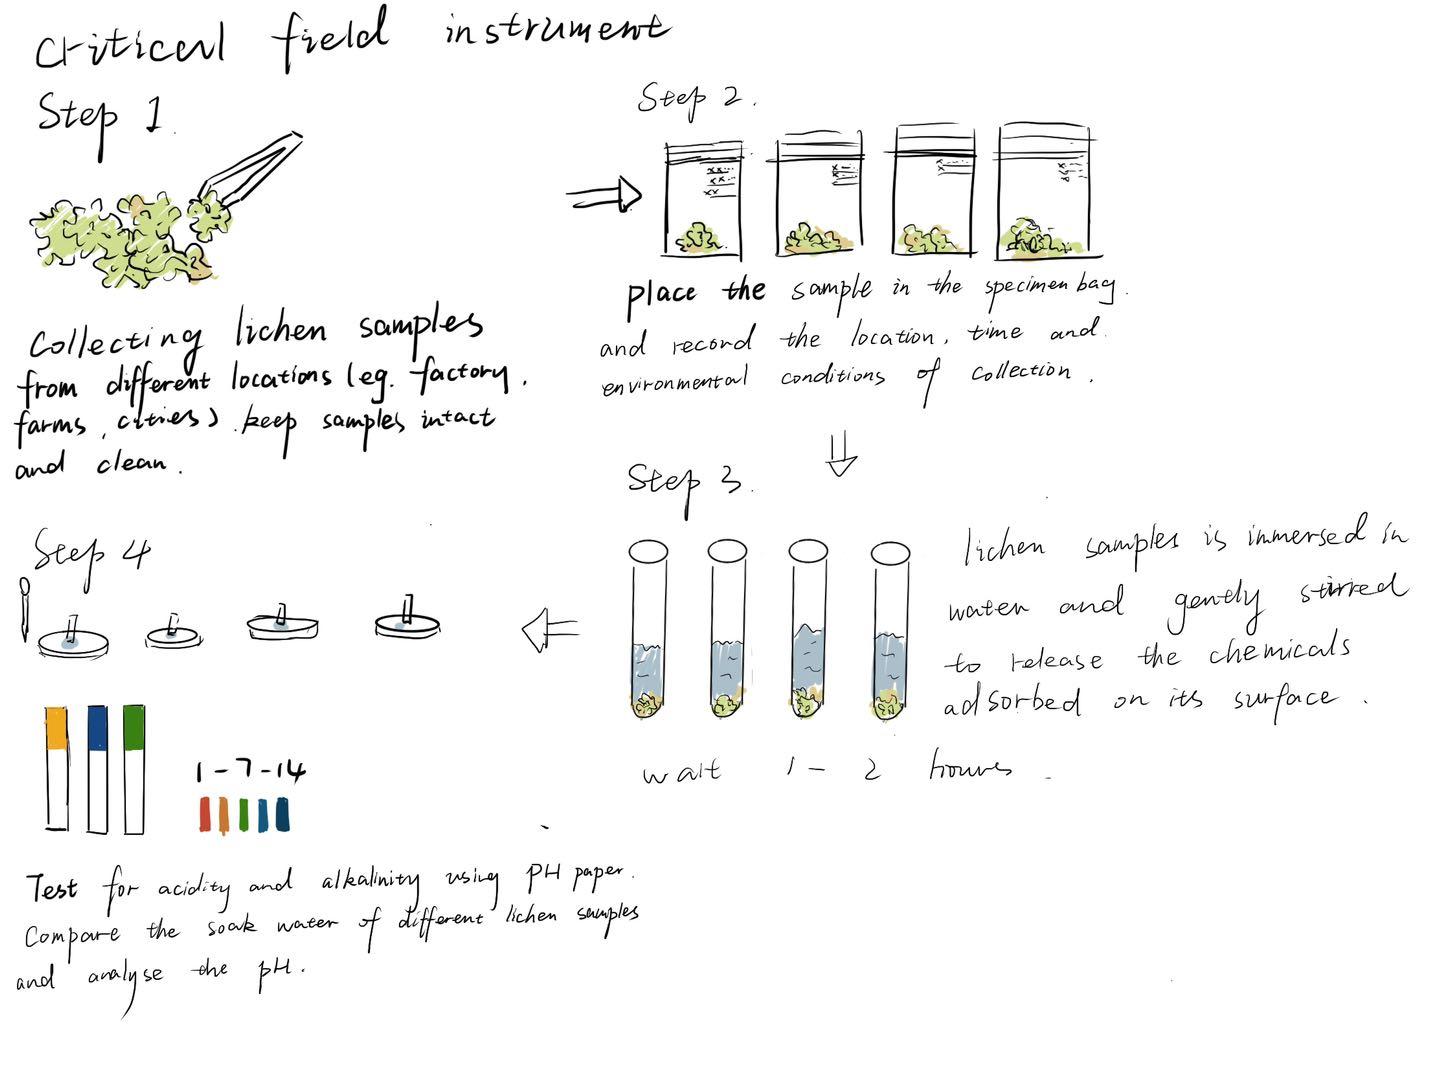 Critical field instrument
Step 1.
Collecting lichen samples
from different locations (eg. factory,
farms, cities). keep samples intact
and clean.
Step 2.
place the sample in the specimen bag.
and record the location, time and
environmental conditions of collection.
Step 3.
lichen samples is immersed in
water and gently stirred
to release the chemicals
adsorbed on its surface.
wait 1-2 hours.
Step 4
1-7-14
Test for acidity and alkalinity using PH paper.
Compare the soak water of different lichen samples
and analyse the pH.